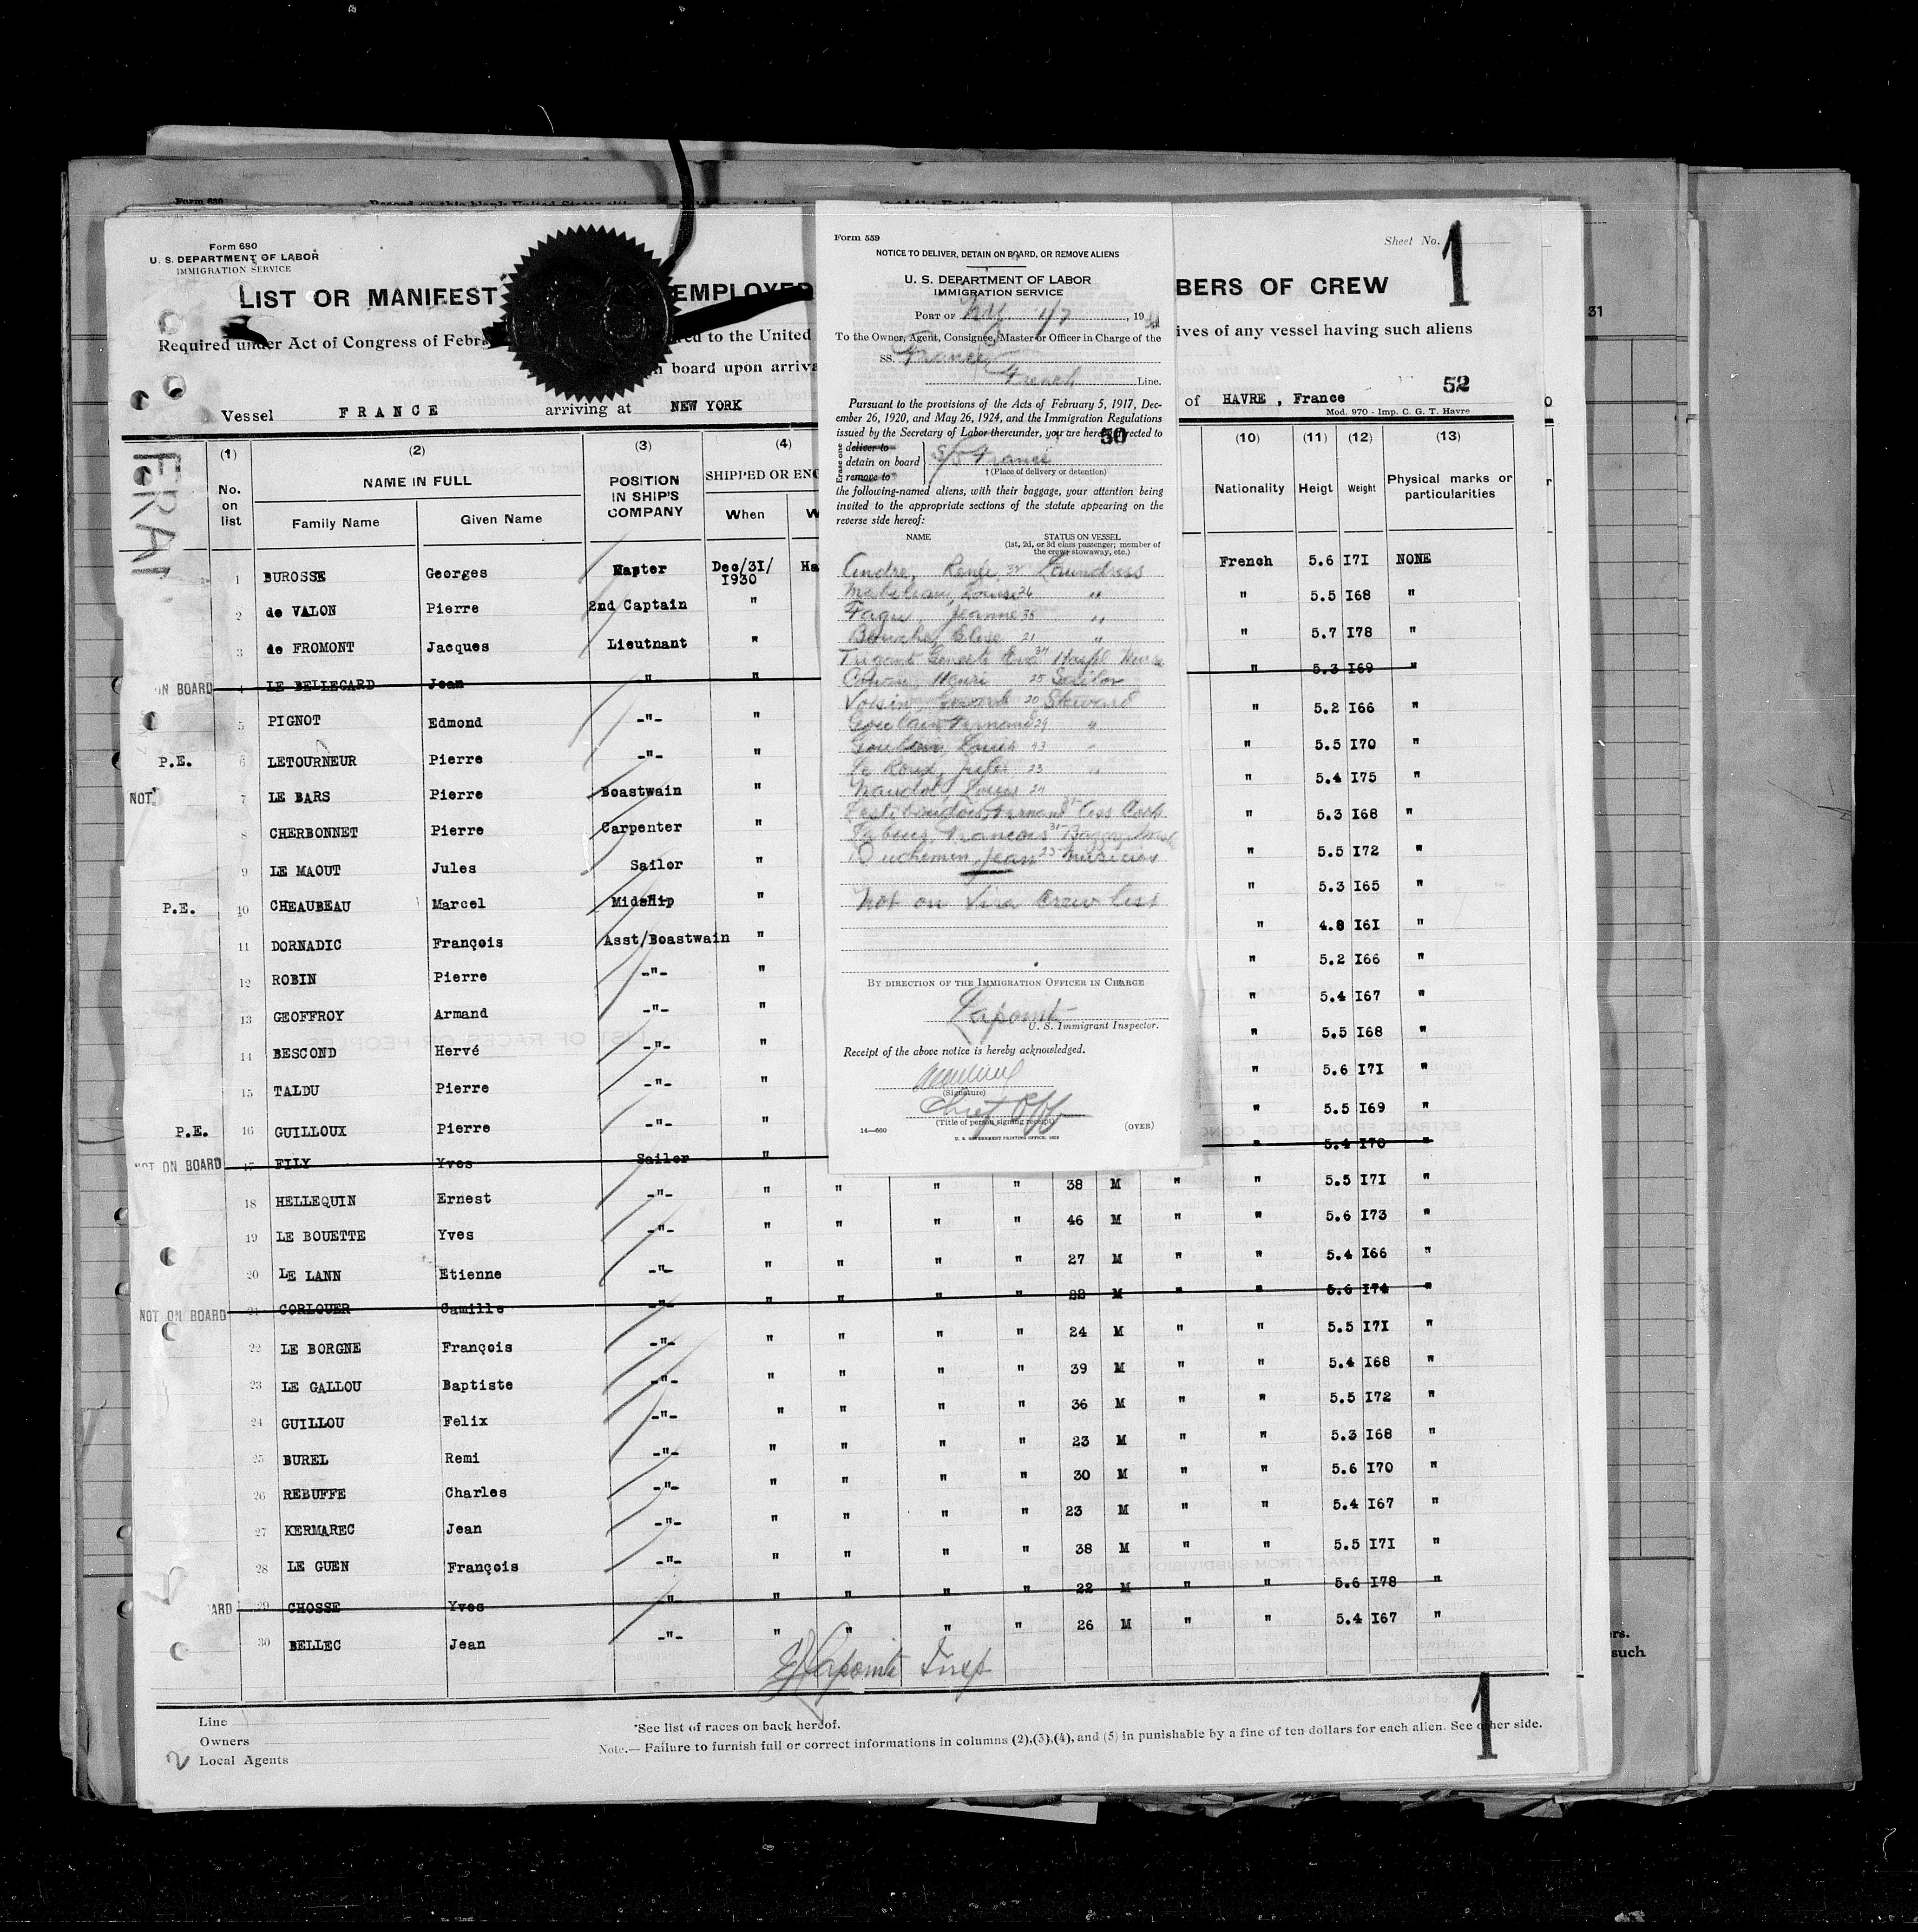 Form 680
U. S. DEPARTMENT OF LABOR
IMMIGRATION SERVICE
Sheet No. 1
LIST OR MANIFEST EMPLOYED BERS OF CREW
Required under Act of Congress of Febr to the United ives of any vessel having such aliens
board upon arriva
52
Vessel FRANCE arriving at NEW YORK of HAVRE , France
Mod. 970 - Imp. C. G. T. Havre
FRAN
(1) (2) (3) (4) (10) (11) (12) (13)
No. on list NAME IN FULL POSITION IN SHIP'S COMPANY SHIPPED OR ENG Nationality Heigt Weight Physical marks or particularities
Family Name Given Name When W
1 BUROSSE Georges Mapter Dec/31/1930 Ha French 5.6 I7I NONE
2 de VALON Pierre 2nd Captain " " 5.5 I68 "
3 de FROMONT Jacques Lieutnant " " 5.7 I78 "
ON BOARD 4 LE BELLEGARD Jean " " " 5.3 I69 "
5 PIGNOT Edmond -"- " " 5.2 I66 "
P.E. 6 LETOURNEUR Pierre -"- " " 5.5 I70 "
NOT 7 LE BARS Pierre Boastwain " " 5.4 I75 "
8 CHERBONNET Pierre Carpenter " " 5.3 I68 "
9 LE MAOUT Jules Sailor " " 5.5 I72 "
P.E. 10 CHEAUBEAU Marcel MidsHip " " 5.3 I65 "
11 DORNADIC François Asst/Boastwain " " 4.8 I6I "
12 ROBIN Pierre -"- " " 5.2 I66 "
13 GEOFFROY Armand -"- " " 5.4 I67 "
14 BESCOND Hervé -"- " " 5.5 I68 "
15 TALDU Pierre -"- " " 5.6 I7I "
P.E. 16 GUILLOUX Pierre -"- " " 5.5 I69 "
NOT ON BOARD 17 FILY Yves Sailor " " 5.4 I70 "
18 HELLEQUIN Ernest -"- " " " " 38 M " " 5.5 I7I "
19 LE BOUETTE Yves -"- " " " " 46 M " " 5.6 I73 "
20 LE LANN Etienne -"- " " " " 27 M " " 5.4 I66 "
NOT ON BOARD 21 CORLOUER Camille -"- " " " " 22 M " " 5.6 I74 "
22 LE BORGNE François -"- " " " " 24 M " " 5.5 I7I "
23 LE GALLOU Baptiste -"- " " " " 39 M " " 5.4 I68 "
24 GUILLOU Felix -"- " " " " 36 M " " 5.5 I72 "
25 BUREL Remi -"- " " " " 23 M " " 5.3 I68 "
26 REBUFFE Charles -"- " " " " 30 M " " 5.6 I70 "
27 KERMAREC Jean -"- " " " " 23 M " " 5.4 I67 "
28 LE GUEN François -"- " " " " 38 M " " 5.5 I7I "
ARD 29 CHOSSE Yves " " " " " 22 M " " 5.6 I78 "
30 BELLEC Jean -"- " " " " 26 M " " 5.4 I67 "
Lapointe Insp
Line
Owners
2 Local Agents
*See list of races on back hereof.
Note.— Failure to furnish full or correct informations in columns (2),(3),(4), and (5) in punishable by a fine of ten dollars for each alien. See other side.
1
Form 559
NOTICE TO DELIVER, DETAIN ON BOARD, OR REMOVE ALIENS
U. S. DEPARTMENT OF LABOR
IMMIGRATION SERVICE
PORT OF NY 1/7, 1931
To the Owner, Agent, Consignee, Master or Officer in Charge of the
SS. France
French Line.
Pursuant to the provisions of the Acts of February 5, 1917, Dec-
ember 26, 1920, and May 26, 1924, and the Immigration Regulations
issued by the Secretary of Labor thereunder, you are hereby directed to
50
Erase one
deliver to
detain on board S/S France
remove to
† (Place of delivery or detention)
the following-named aliens, with their baggage, your attention being
invited to the appropriate sections of the statute appearing on the
reverse side hereof:
NAME STATUS ON VESSEL
(1st, 2d, or 3d class passenger; member of
the crew; stowaway, etc.)
Andre, Renée 32 Laundress
Louise 26 "
Jeanne 38 "
Elise 21 "
Trigant Geneste Eva 34 Hospl Nurse
Henri 25 Sailor
Voisin, 20 Steward
Goulain Fernand 29 "
Louis 43 "
Le Roux, Jules 23 "
Naudot, Louis 24
Fernand Ass Cook
Francois 31
Duchemin, Jean 23 Musician
Not on Visa Crew list
BY DIRECTION OF THE IMMIGRATION OFFICER IN CHARGE
Lapointe
U. S. Immigrant Inspector.
Receipt of the above notice is hereby acknowledged.
(Signature)
Chief Off
(Title of person signing receipt)
14—660 (OVER)
U. S. GOVERNMENT PRINTING OFFICE: 1929